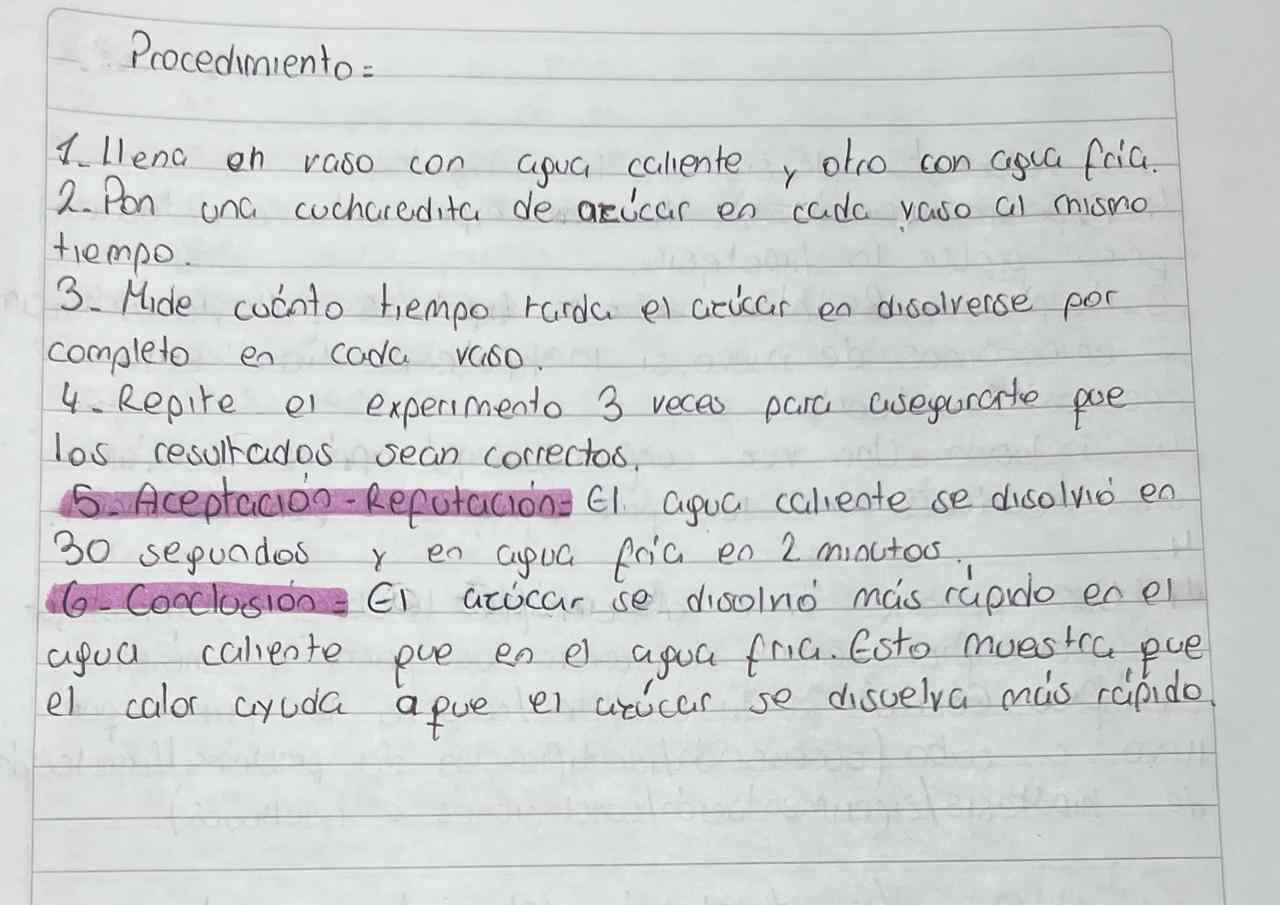 Procedimiento=
1. llena en vaso con agua caliente y otro con agua fría.
2. Pon una cucharedita de azúcar en cada vaso al mismo
tiempo.
3. Mide cuánto tiempo tarda el azúcar en disolverse por
completo en cada vaso.
4. Repite el experimento 3 veces para asegurarte que
los resultados sean correctos.
5. Aceptación-Refutación= El agua caliente se disolvió en
30 segundos y en agua fría en 2 minutos.
6- Conclusión= El azúcar se disolvió más rápido en el
agua caliente que en el agua fria. Esto muestra que
el calor ayuda a que el azúcar se disuelva más rápido.